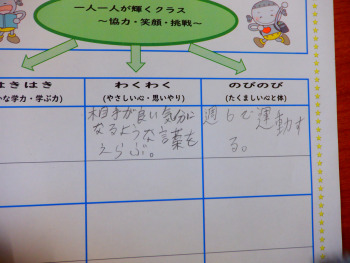 一人一人が輝くクラス
～協力・笑顔・挑戦～
はきはき
かな学力・学ぶ力)
わくわく
(やさしい心・思いやり)
のびのび
(たくましい心と体)
相手が良い気分に
なるような言葉を
えらぶ。
週6で運動す
る。